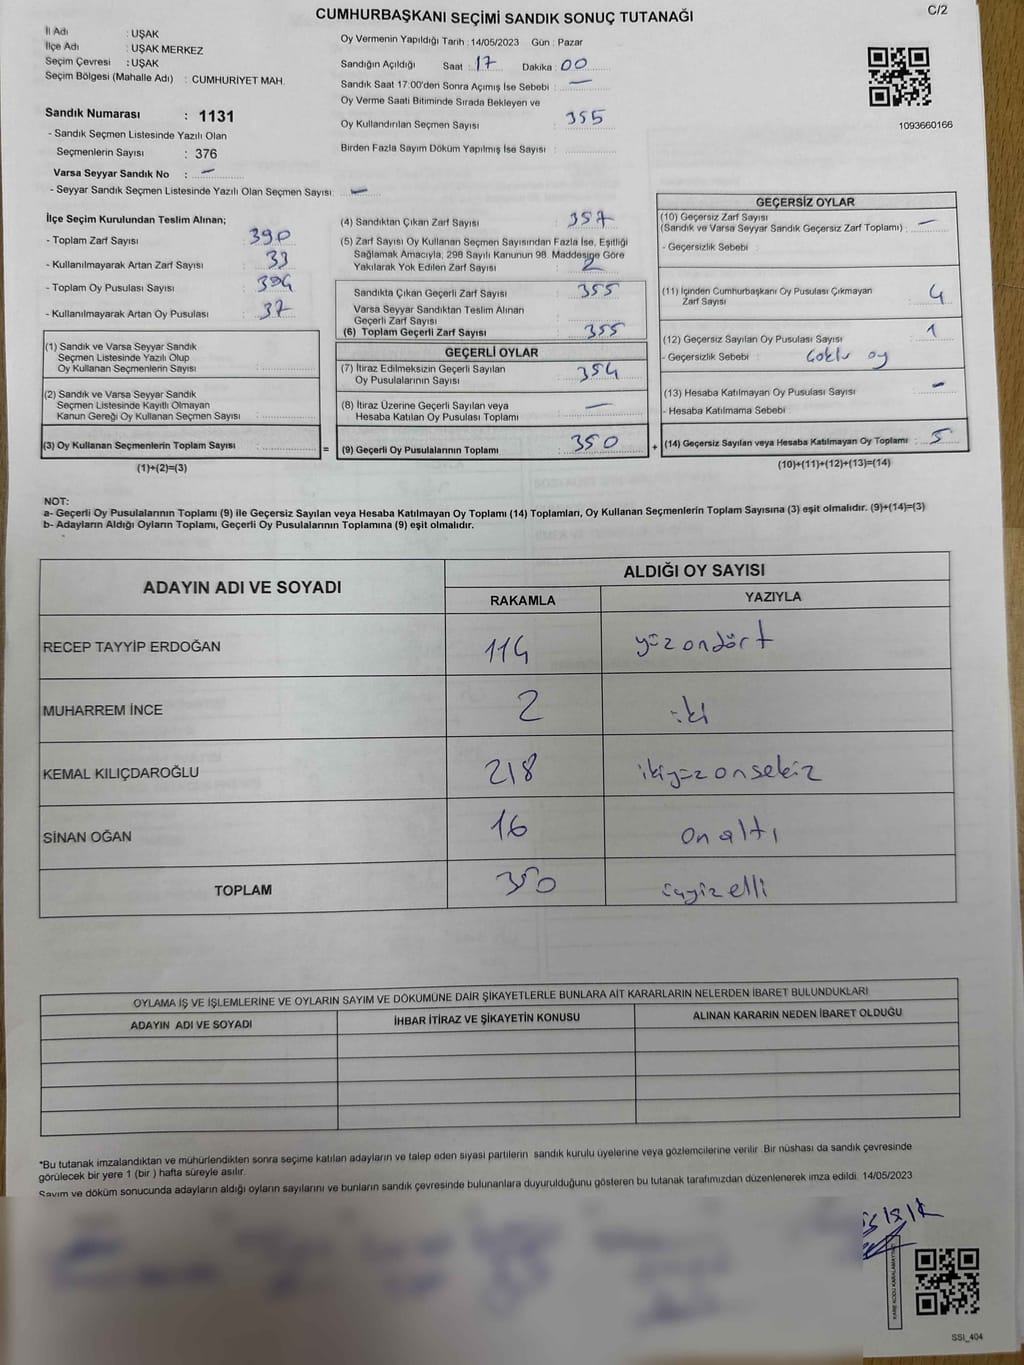 CUMHURBAŞKANI SEÇİMİ SANDIK SONUÇ TUTANAĞI
C/2
İl Adı : UŞAK
İlçe Adı : UŞAK MERKEZ
Seçim Çevresi : UŞAK
Seçim Bölgesi (Mahalle Adı) : CUMHURİYET MAH.
Sandık Numarası : 1131
- Sandık Seçmen Listesinde Yazılı Olan
Seçmenlerin Sayısı : 376
Varsa Seyyar Sandık No : —
- Seyyar Sandık Seçmen Listesinde Yazılı Olan Seçmen Sayısı: —
Oy Vermenin Yapıldığı Tarih : 14/05/2023 Gün : Pazar
Sandığın Açıldığı Saat : 17 Dakika : 00
Sandık Saat 17:00'den Sonra Açımış İse Sebebi : —
Oy Verme Saati Bitiminde Sırada Bekleyen ve
Oy Kullandırılan Seçmen Sayısı : 355
Birden Fazla Sayım Döküm Yapılmış İse Sayısı :
1093660166
İlçe Seçim Kurulundan Teslim Alınan;
- Toplam Zarf Sayısı : 390
- Kullanılmayarak Artan Zarf Sayısı : 33
- Toplam Oy Pusulası Sayısı : 394
- Kullanılmayarak Artan Oy Pusulası : 37
(1) Sandık ve Varsa Seyyar Sandık
Seçmen Listesinde Yazılı Olup
Oy Kullanan Seçmenlerin Sayısı :
(2) Sandık ve Varsa Seyyar Sandık
Seçmen Listesinde Kayıtlı Olmayan
Kanun Gereği Oy Kullanan Seçmen Sayısı :
(3) Oy Kullanan Seçmenlerin Toplam Sayısı :
(1)+(2)=(3)
=
(4) Sandıktan Çıkan Zarf Sayısı : 357
(5) Zarf Sayısı Oy Kullanan Seçmen Sayısından Fazla İse, Eşitliği
Sağlamak Amacıyla; 298 Sayılı Kanunun 98. Maddesine Göre
Yakılarak Yok Edilen Zarf Sayısı : 2
Sandıkta Çıkan Geçerli Zarf Sayısı : 355
Varsa Seyyar Sandıktan Teslim Alınan
Geçerli Zarf Sayısı :
(6) Toplam Geçerli Zarf Sayısı : 355
GEÇERLİ OYLAR
(7) İtiraz Edilmeksizin Geçerli Sayılan
Oy Pusulalarının Sayısı : 354
(8) İtiraz Üzerine Geçerli Sayılan veya
Hesaba Katılan Oy Pusulası Toplamı : —
(9) Geçerli Oy Pusulalarının Toplamı : 350
+
GEÇERSİZ OYLAR
(10) Geçersiz Zarf Sayısı
(Sandık ve Varsa Seyyar Sandık Geçersiz Zarf Toplamı) : —
- Geçersizlik Sebebi :
(11) İçinden Cumhurbaşkanı Oy Pusulası Çıkmayan
Zarf Sayısı : 4
(12) Geçersiz Sayılan Oy Pusulası Sayısı : 1
- Geçersizlik Sebebi : Çoklu oy
(13) Hesaba Katılmayan Oy Pusulası Sayısı : —
- Hesaba Katılmama Sebebi :
(14) Geçersiz Sayılan veya Hesaba Katılmayan Oy Toplamı : 5
(10)+(11)+(12)+(13)=(14)
NOT:
a- Geçerli Oy Pusulalarının Toplamı (9) ile Geçersiz Sayılan veya Hesaba Katılmayan Oy Toplamı (14) Toplamları, Oy Kullanan Seçmenlerin Toplam Sayısına (3) eşit olmalıdır. (9)+(14)=(3)
b- Adayların Aldığı Oyların Toplamı, Geçerli Oy Pusulalarının Toplamına (9) eşit olmalıdır.
ADAYIN ADI VE SOYADI
ALDIĞI OY SAYISI
RAKAMLA YAZIYLA
RECEP TAYYİP ERDOĞAN 114 yüz ondört
MUHARREM İNCE 2 iki
KEMAL KILIÇDAROĞLU 218 ikiyüz onsekiz
SİNAN OĞAN 16 on altı
TOPLAM 350 üçyüz elli
OYLAMA İŞ VE İŞLEMLERİNE VE OYLARIN SAYIM VE DÖKÜMÜNE DAİR ŞİKAYETLERLE BUNLARA AİT KARARLARIN NELERDEN İBARET BULUNDUKLARI
ADAYIN ADI VE SOYADI İHBAR İTİRAZ VE ŞİKAYETİN KONUSU ALINAN KARARIN NEDEN İBARET OLDUĞU
*Bu tutanak imzalandıktan ve mühürlendikten sonra seçime katılan adayların ve talep eden siyasi partilerin sandık kurulu üyelerine veya gözlemcilerine verilir. Bir nüshası da sandık çevresinde
görülecek bir yere 1 (bir ) hafta süreyle asılır.
Sayım ve döküm sonucunda adayların aldığı oyların sayılarını ve bunların sandık çevresinde bulunanlara duyurulduğunu gösteren bu tutanak tarafımızdan düzenlenerek imza edildi. 14/05/2023
KARE KODU KARALAMAYINIZ
SSI_404